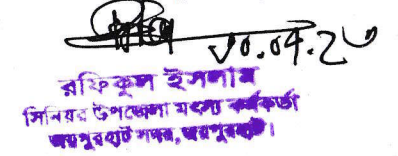 ৩০.০৭.২৩
রফিকুল ইসলাম
সিনিয়র উপজেলা মৎস্য কর্মকর্তা
জয়পুরহাট সদর, জয়পুরহাট।